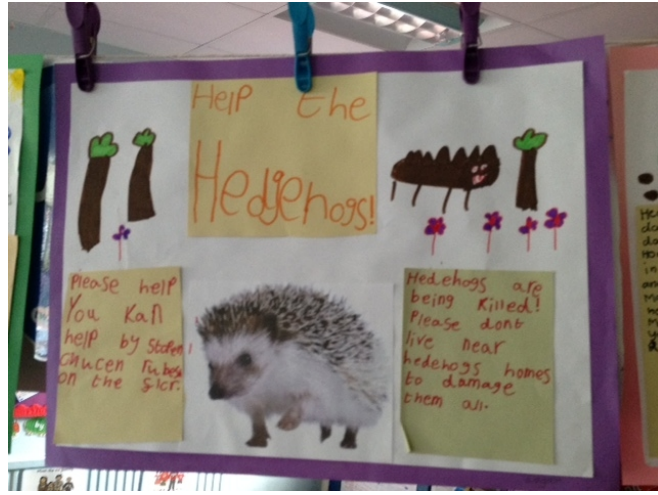 Help the
Hedgehogs!
Please help
You Kan
help by
on the
Hedehogs are
being killed!
Please dont
live near
hedehogs homes
to damage
them all.